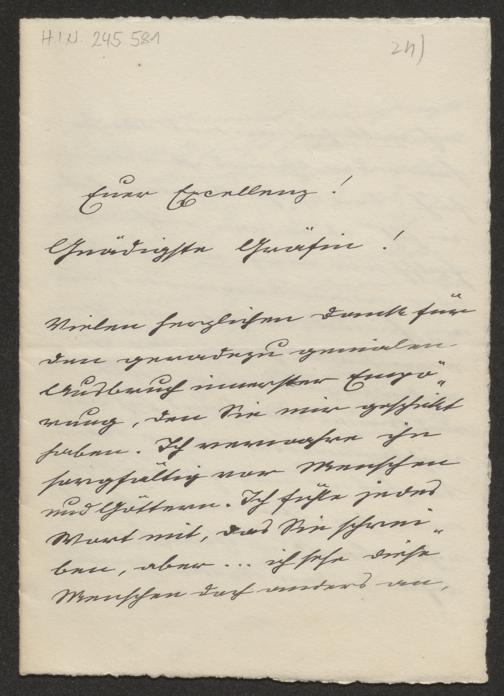 H.I.N. 245.581
2n)
Euer Excellenz!
Gnädigste Gräfin!
Vielen herzlichen Dank für
den geradezu genialen
Ausbruch innerster Empö„
rung, den Sie mir geschickt
haben. Ich verwahre ihn
sorgfältig vor Menschen
und Göttern. Ich fühle jedes
Wort mit, das Sie schrei„
ben, aber... ich sehe diese
Menschen doch anders an,